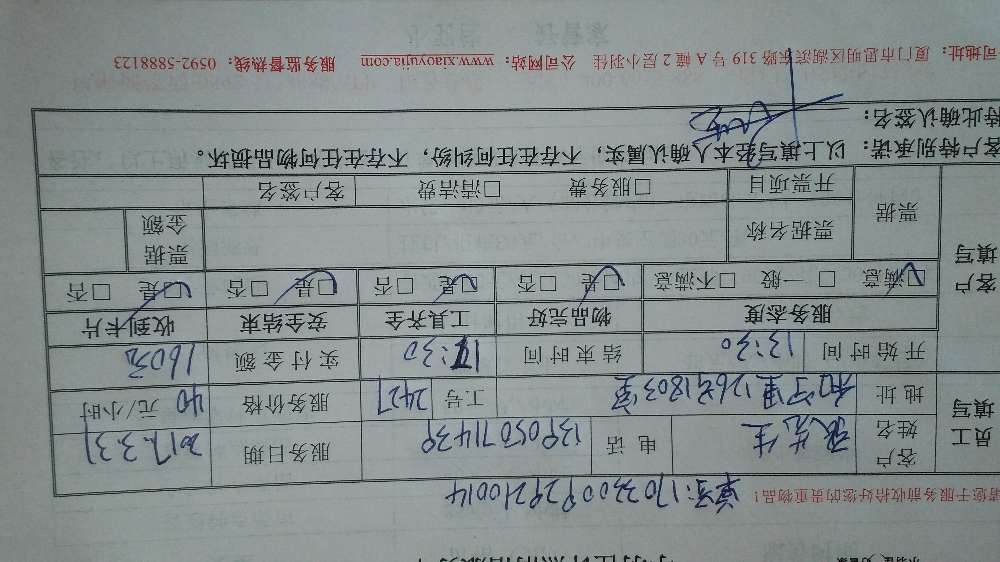 请您于服务前收拾好您的贵重物品!
单号:1703200929210014
员工填写
客户姓名 张先生 电话 13905071439 服务日期 2017.3.31
地址 和宁里126号1803室 工号 2427 服务价格 40元/小时
开始时间 13:30 结束时间 17:30 实付金额 160元
客户填写
服务态度 物品完好 工具齐全 安全结束 收到卡片
☑满意 □一般 □不满意 ☑是 □否 ☑是 □否 ☑是 □否 ☑是 □否
票据 票据名称 票据金额
开票项目 □服务费 □清洁费 客户签名
客户特别承诺:以上填写经本人确认属实,不存在任何纠纷,不存在任何物品损坏。
特此确认签名:
司地址:厦门市思明区湖滨东路 319 号 A 幢 2 层小羽佳 公司网站:www.xiaoyujia.com 服务监督热线:0592-5888123